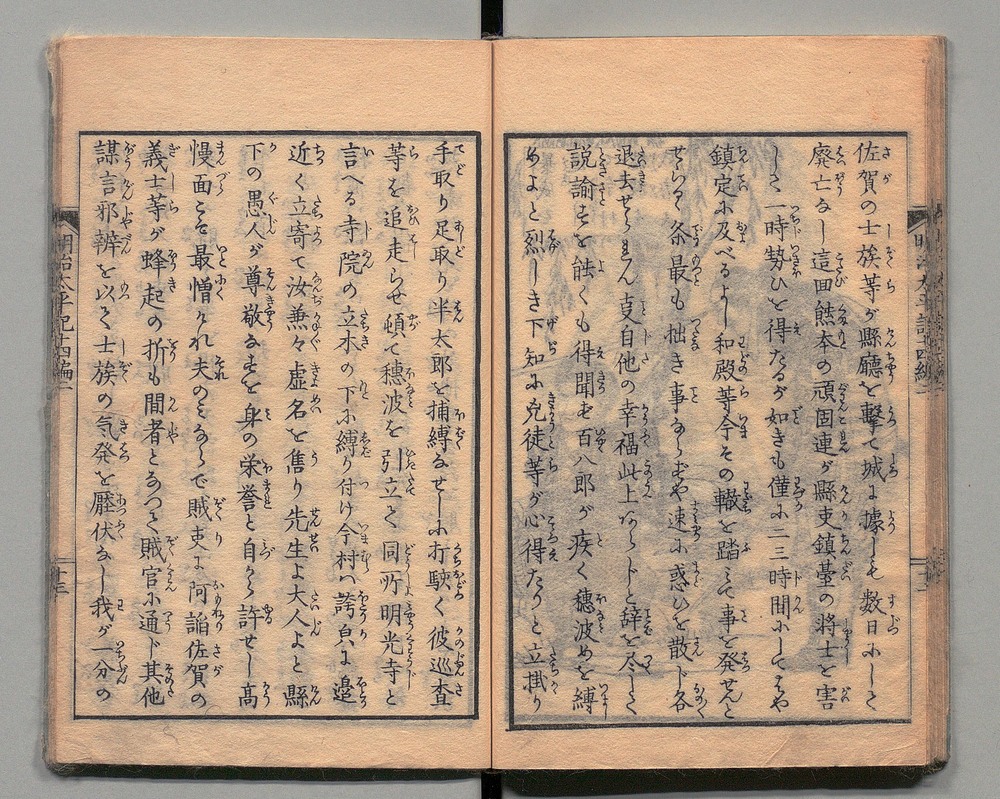 佐賀の士族等が縣廳を撃て城に據しも数日にして
廃亡なし這回熊本の頑固連が縣吏鎮臺の将士を害
して一時勢ひを得たるが如きも僅に二三時間にしてはや
鎮定に及べるよし和殿等今その轍を踏て事を発せんと
せらるゝ条最も拙き事ならずや速に惑ひを散し各
退去せられん支自他の幸福此上なからじと辞を尽して
説諭すを能くも得聞ず百八郎が疾く穗波めを縛
めよと烈しき下知に兇徒等が心得たりと立掛り
手取り足取り半太郎を捕縛なせしに打駭く彼巡査
等を追走らせ頓て穗波を引立て同所明光寺と
言へる寺院の立木の下に縛り付け今村は誇皃に邉
近く立寄て汝兼々虚名を售り先生よ大人よと縣
下の愚人が尊敬なすを身の栄誉と自から許せし高
慢面こそ最憎けれ夫のみならで賊吏に阿諂佐賀の
義士等が蜂起の折も間者となつて賊官に通じ其他
謀言邪辨を以て士族の気発を壓伏なし我が一分の
明治太平記十四編二
十二